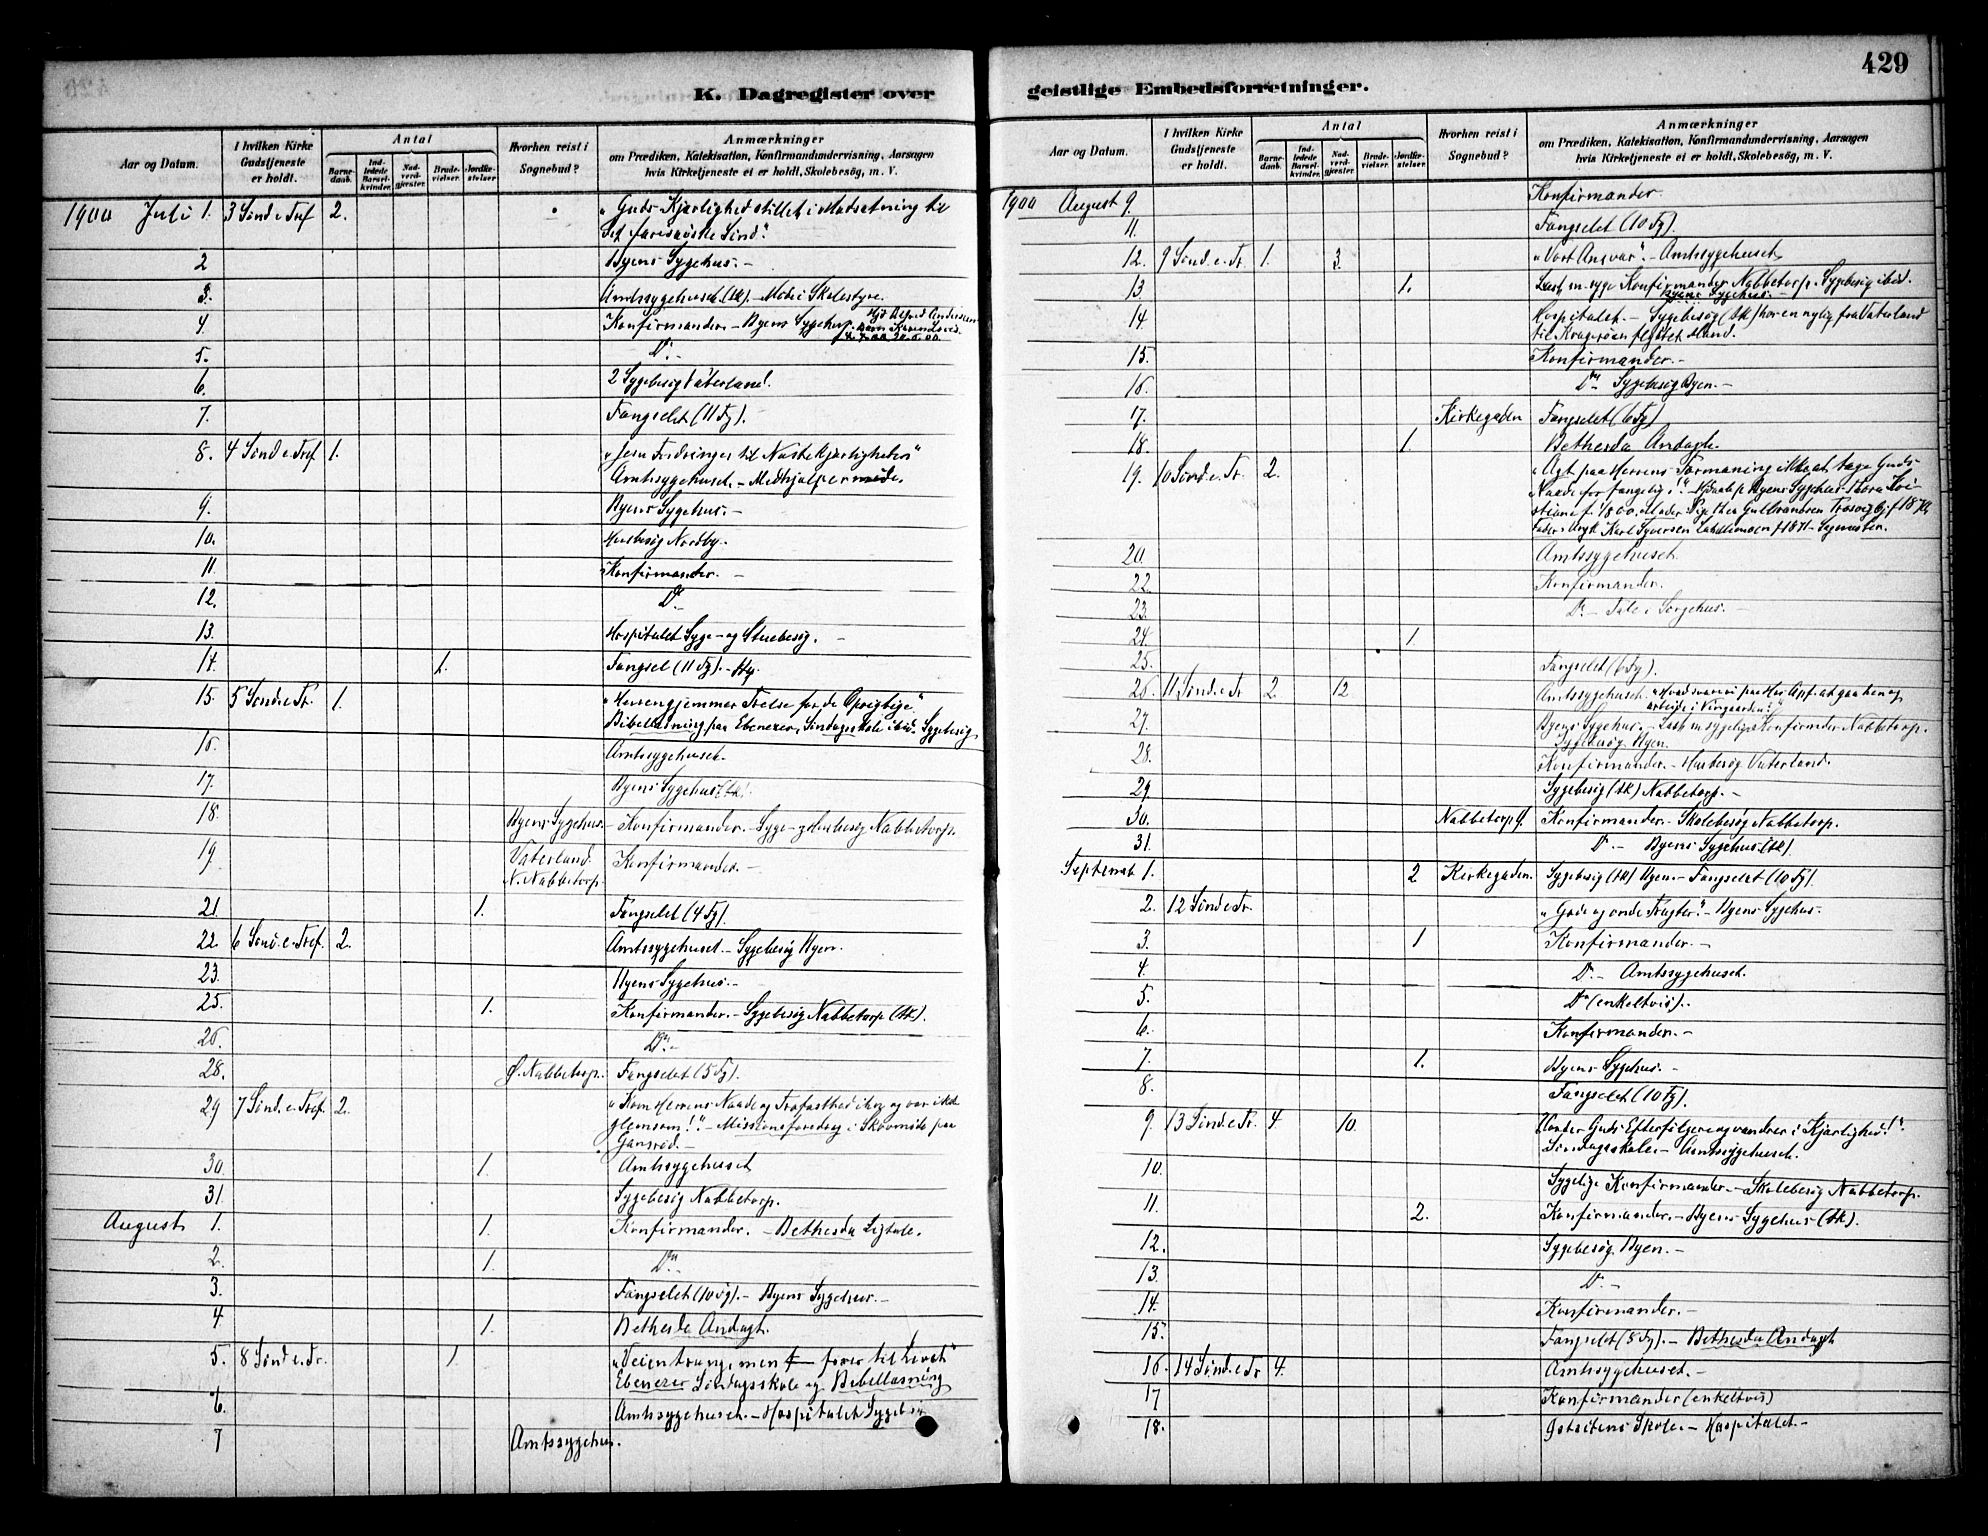 429
K. Dagregister over
geistlige Embedsforretninger.
Aar og Datum.
I hvilken Kirke Gudstjeneste er holdt.
Antal
Barne-daab.
Ind-ledede Barsel-kvinder.
Nad-verd-gjester.
Brude-vielser.
Jordfæ-stelser.
Hvorhen reist i Sognebud?
Anmærkninger
om Prædiken, Katekisation, Konfirmandundervisning, Aarsagen
hvis Kirketjeneste ei er holdt, Skolebesøg, m. V.
1900 Juli 1. 3 Sønd e Tref 2. "Guds Kjærlighed stillet i Modsætning til
det farisæiske Sind".
2 Byens Sygehus. -
3. Amtssygehuset (Ak). - Møde i Skolestyre.
4. Konfirmander. - Byens Sygehus.
5. Do. -
6. 2 Sygebesøg Vaterland.
7. Fængselet (11 Fg).
8. 4 Sønd e Tref 1. "Jesu Fordringer til Næstekjærligheden"
Amtssygehuset. - Medhjælpermøde.
9. Byens Sygehus. -
10. Husbesøg Nordby.
11. Konfirmander. -
12. Do
13. Hospitalet Syge- og Stuebesøg. -
14. 1. Fængsel (11 Fg).
15. 5 Sønd. e Tr. 1. "Herren gjemmer Frelse for de Oprigtige."
Bibellæsning paa Ebenezer, Søndagsskole ibid. Sygebesøg
16. Amtssygehuset.
17. Byens Sygehus (Ak).
18. Byens Sygehus. - Konfirmander. - Syge- og Husbesøg Nabbetorp.
19. Vaterland. Konfirmander. -
N. Nabbetorp.
21. 1. Fængselet (4 Fg).
22. 6 Sønd. e Tref. 2. Amtssygehuset. - Sygebesøg Byen.
23. Byens Sygehus. -
25. 1. Konfirmander. - Sygebesøg Nabbetorp (Ak).
26. Do. -
28. Ø. Nabbetorp. Fængselet (5 Fg).
29 7 Sønd. e Tref. 2. "Kom Herrens Naade og Trofasthed ihu og vær ikke
glemsom!". - Missionsforedrag i Skovmøde paa
Gansrød. -
30. 1. Amtssygehuset
31. Sygebesøg Nabbetorp.
August 1. 1. Konfirmander. - Bethesda Ligtale.
2. 1. Do. -
3. Fængselet (10 Fg). - Byens Sygehus. -
4 1. Bethesda Andagt.
5. 8 Sønd. e Tr. 1. "Veien trang, men fører til Livet"
Ebenezer Søndagsskole og Bibellæsning
6. Amtssygehuset. - Hospitalet Sygebesøg
7 Amtssygehus.
Aar og Datum.
I hvilken Kirke Gudstjeneste er holdt.
Antal
Barne-daab.
Ind-ledede Barsel-kvinder.
Nad-verd-gjæster.
Brude-vielser.
Jordfæ-stelser.
Hvorhen reist i Sognebud?
Anmærkninger
om Prædiken, Katekisation, Konfirmandundervisning, Aarsagen
hvis Kirketjeneste ei er holdt, Skolebesøg, m. V.
1900 August 9. Konfirmander.
11. Fængselet (10 Fg).
12. 9 Sønd. e Tr. 1. 3. "Vort Ansvar". - Amtssygehuset
13. 1. Læst m. syge Konfirmander Nabbetorp. Sygebesøg ibid.
Byens Sygehus. -
14. Hospitalet. - Sygebesøg (Ak) hos en nylig fra Vaterland
til Kragerøen flyttet Mand.
15. Konfirmander. -
16. Do. - Sygebesøg Byen. -
17. Kirkegaden Fængselet (6 Fg)
18. 1. Bethesda Andagt.
19. 10 Sønd. e Tr. 2. "Agt paa Herrens Formaning ikke at tage Guds
Naade forfængelig!"
20. Amtssygehuset.
22. Konfirmander.
23. Do - Tale i Sørgehus. -
24. 1
25. Fængselet (6 Fg).
26. 11 Sønd. e Tr 2. 12 Amtssygehuset.
arbeide i Vingaarden?"
27. Byens Sygehus. - Læst m. sygelige Konfirmander Nabbetorp.
Sygebesøg Byen.
28. Konfirmander. - Husbesøg Vaterland.
29. Sygebesøg (Ak) Nabbetorp. -
30. Nabbetorp Ø. Konfirmander. - Skolebesøg Nabbetorp.
31. Do. - Byens Sygehus (Ak).
Septemb 1. 2 Kirkegaden. Sygebesøg (Ak) Byen. - Fængselet (10 Fg).
2. 12 Sønd e Tr. "Gode og onde Frugter." - Byens Sygehus.
3. 1 Konfirmander. -
4. Do. - Amtssygehuset.
5. Do (enkeltvis).
6. Konfirmander. -
7. 1. Byens Sygehus. -
8. Fængselet (10 Fg).
9. 13 Sønd. e Tr. 4. 10. Vorder Guds Efterfølgere og vandrer i Kjærlighed!"
Søndagsskole. - Amtssygehuset.
10. Sygelige Konfirmander. - Skolebesøg Nabbetorp.
11. 2. Konfirmander. - Byens Sygehus (Ak).
12. Sygebesøg Byen. -
13. Do. -
14. Konfirmander. -
15. Fængselet (8 Fg). - Bethesda Andagt
16. 14 Sønd. e Tr 4. Amtssygehuset. -
17 Konfirmander (enkeltvis)
18. Østsidens Skole. - Hospitalet. -